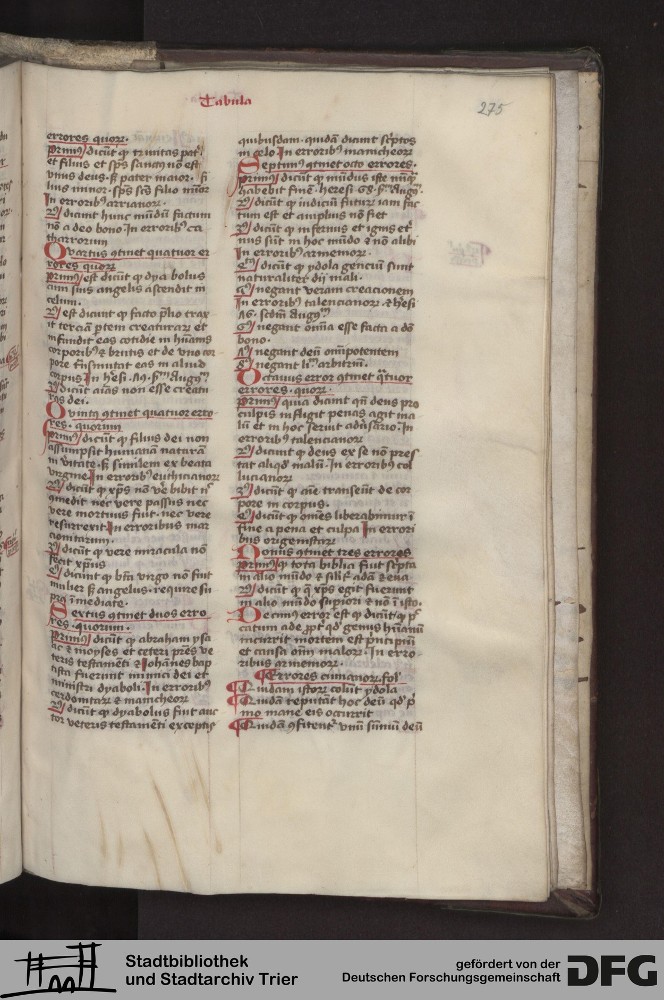 Tabula
275
errores quorum
Primus dicunt quod trinitas patris
et filius et spiritus sanctus non est
vnus deus sed pater maior fi
lius minor spiritus sanctus filio minor
In erroribus arrianorum
2us dicunt hunc mundum factum
non a deo bono In erroribus ca
tharrorum
Quartus continet quatuor er
rores quorum
Primus est dicunt quod dyabolus
cum suis angelis ascendit in
celum
2us est dicunt quod facto prelio trax
it terciam partem creaturarum et
infundit eas cotidie in humanis
corporibus et brutis et de vno cor
pore transmutat eas in aliud
corpus In heresi
dicunt animas non esse creatu
ras dei
Quintus continet quatuor erro
res quorum
Primus dicunt quod filius dei non
assumpsit humanam naturam
in veritate sed similem ex beata
virgine In erroribus euthicianorum
2us dicunt quod christus non vere bibit nec
comedit nec vere passus nec
vere mortuus fuit nec vere
resurrexit In erroribus mar
cionitarum
3us dicunt quod vere miracula non
fecit christus
dicunt quod beata virgo non fuit
mulier sed angelus require su
pra immediate
Sextus continet duos erro
res quorum
Primus dicunt quod abraham ysa
ac et moyses et ceteri patres ve
teris testamenti et Iohannes bap
tista fuerunt inimici dei et
ministri dyaboli In erroribus
cerdonitarum et manicheorum
2us dicunt quod dyabolus fuit auc
tor veteris testamenti exceptis
quibusdam quidam dicunt scriptos
in celo In erroribus manicheorum
Septimus continet octo errores
Primus dicunt quod mundus iste numquam
habebit finem heresi
2us dicunt quod iudicium futurum iam fac
tum est et amplius non fiet
3us dicunt quod infernus et ignis eter
nus sunt in hoc mundo et non alibi
In erroribus armenorum
dicunt quod ydola gencium sunt
naturaliter dij mali
negant veram creacionem
In erroribus talencianorum et heresi
secundum
6us negant omnia esse facta a deo
bono
negant deum omnipotentem
8us negant liberum arbitrium
Octauus error continet quatuor
errores quorum
Primus quia dicunt quod deus pro
culpis infligit penas agit ma
lum et in hoc seruit aduersario In
erroribus talencianorum
2us dicunt quod deus ex se non pres
tat aliquod malum In erroribus col
lucianorum
3us dicunt quod anime transeunt de cor
pore in corpus
dicunt quod omnes liberabuntur in
fine a pena et culpa In errori
bus origenistarum
Nonus continet tres errores
Primus quod tota biblia fuit scripta
in alio mundo et similiter adam et eua
2us dicunt quod que christus egit fuerunt
in alio mundo superiori et non in isto
Decimus error est quod dicunt quod pec
catum ade propter quod genus humanum
incurrit mortem est principium
et causa omnium malorum In erro
ribus armenorum
Errores cumanorum folio
Quidam istorum colunt ydola
Quidam reputant hoc deum quod pri
mo mane eis occurrit
Quidam confitentur vnum summum deum
Stadtbibliothek
und Stadtarchiv Trier
gefördert von der
Deutschen Forschungsgemeinschaft
DFG